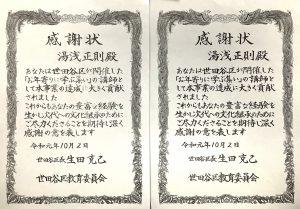 感謝状
湯浅正則殿
あなたは世田谷区が開催した
「お年寄りに学ぶ集い」の講師と
して本事業の達成に大きく貢献
されました
これからもあなたの豊富な経験を
生かし次代への文化継承のために
ご尽力くださることを期待し深く
感謝の意を表します
令和元年10月2日
世田谷区長
世田谷区教育委員会
感謝状
湯浅正則殿
あなたは世田谷区が開催した
「お年寄りに学ぶ集い」の講師と
して本事業の達成に大きく貢献
されました
これからもあなたの豊富な経験を
生かし次代への文化継承のために
ご尽力くださることを期待し深く
感謝の意を表します
令和元年10月2日
世田谷区長
世田谷区教育委員会